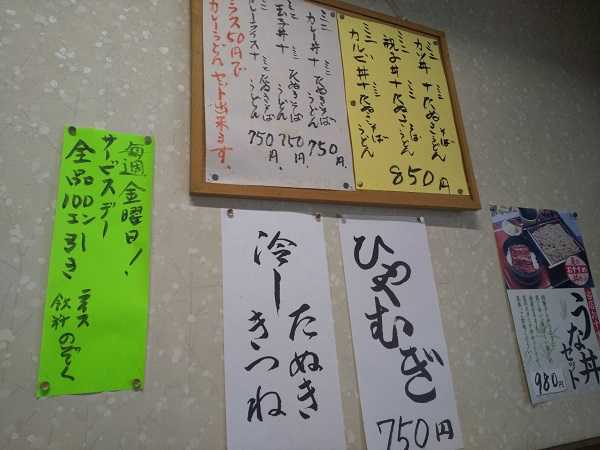 ミニカツ丼+ミニたぬきそばうどん
ミニ親子丼+ミニたぬきそばうどん
ミニカルビ丼+ミニたぬきそばうどん
850円
ミニカレー丼+ミニたぬきそばうどん 750円
ミニ玉子丼+ミニたぬきそばうどん 750円
カレーライス+ミニたぬきそばうどん 750円.
プラス50円で
カレーうどんセット出来ます.
毎週金曜日!
サービスデー
全品100エン引き
ライス
飲料のぞく
冷し
たぬき
きつね
ひやむぎ
750円
おすすめ
うな丼
セット
980円